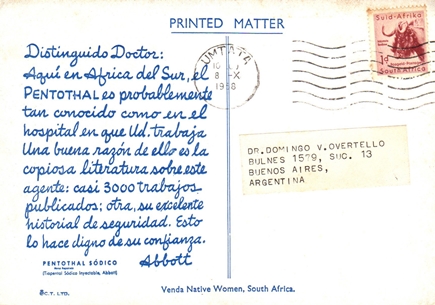 PRINTED MATTER
Distinguido Doctor:
Aquí en Africa del Sur, el
PENTOTHAL es probablemente
tan conocido como en el
hospital en que Ud. trabaja
Una buena razón de ello es la
copiosa literatura sobre este
agente: casi 3000 trabajos
publicados; otra, su excelente
historial de seguridad. Esto
lo hace digno de su confianza.
Abbott
PENTOTHAL SÓDICO
(Tiopental Sódico Inyectable, Abbott)
S.C.T. LTD.
UMTATA
8-X
1958
Suid-Afrika
1d
South Africa
DR. DOMINGO V. OVERTELLO
BULNES 1579, SUC. 13
BUENOS AIRES,
ARGENTINA
Venda Native Women, South Africa.